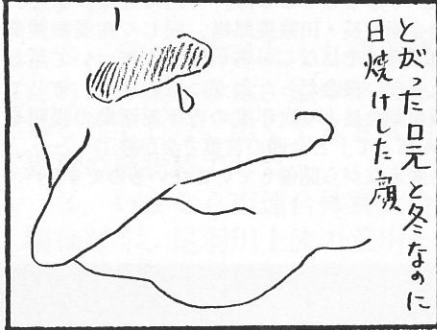 とがった口元と冬なのに
日焼けした顔